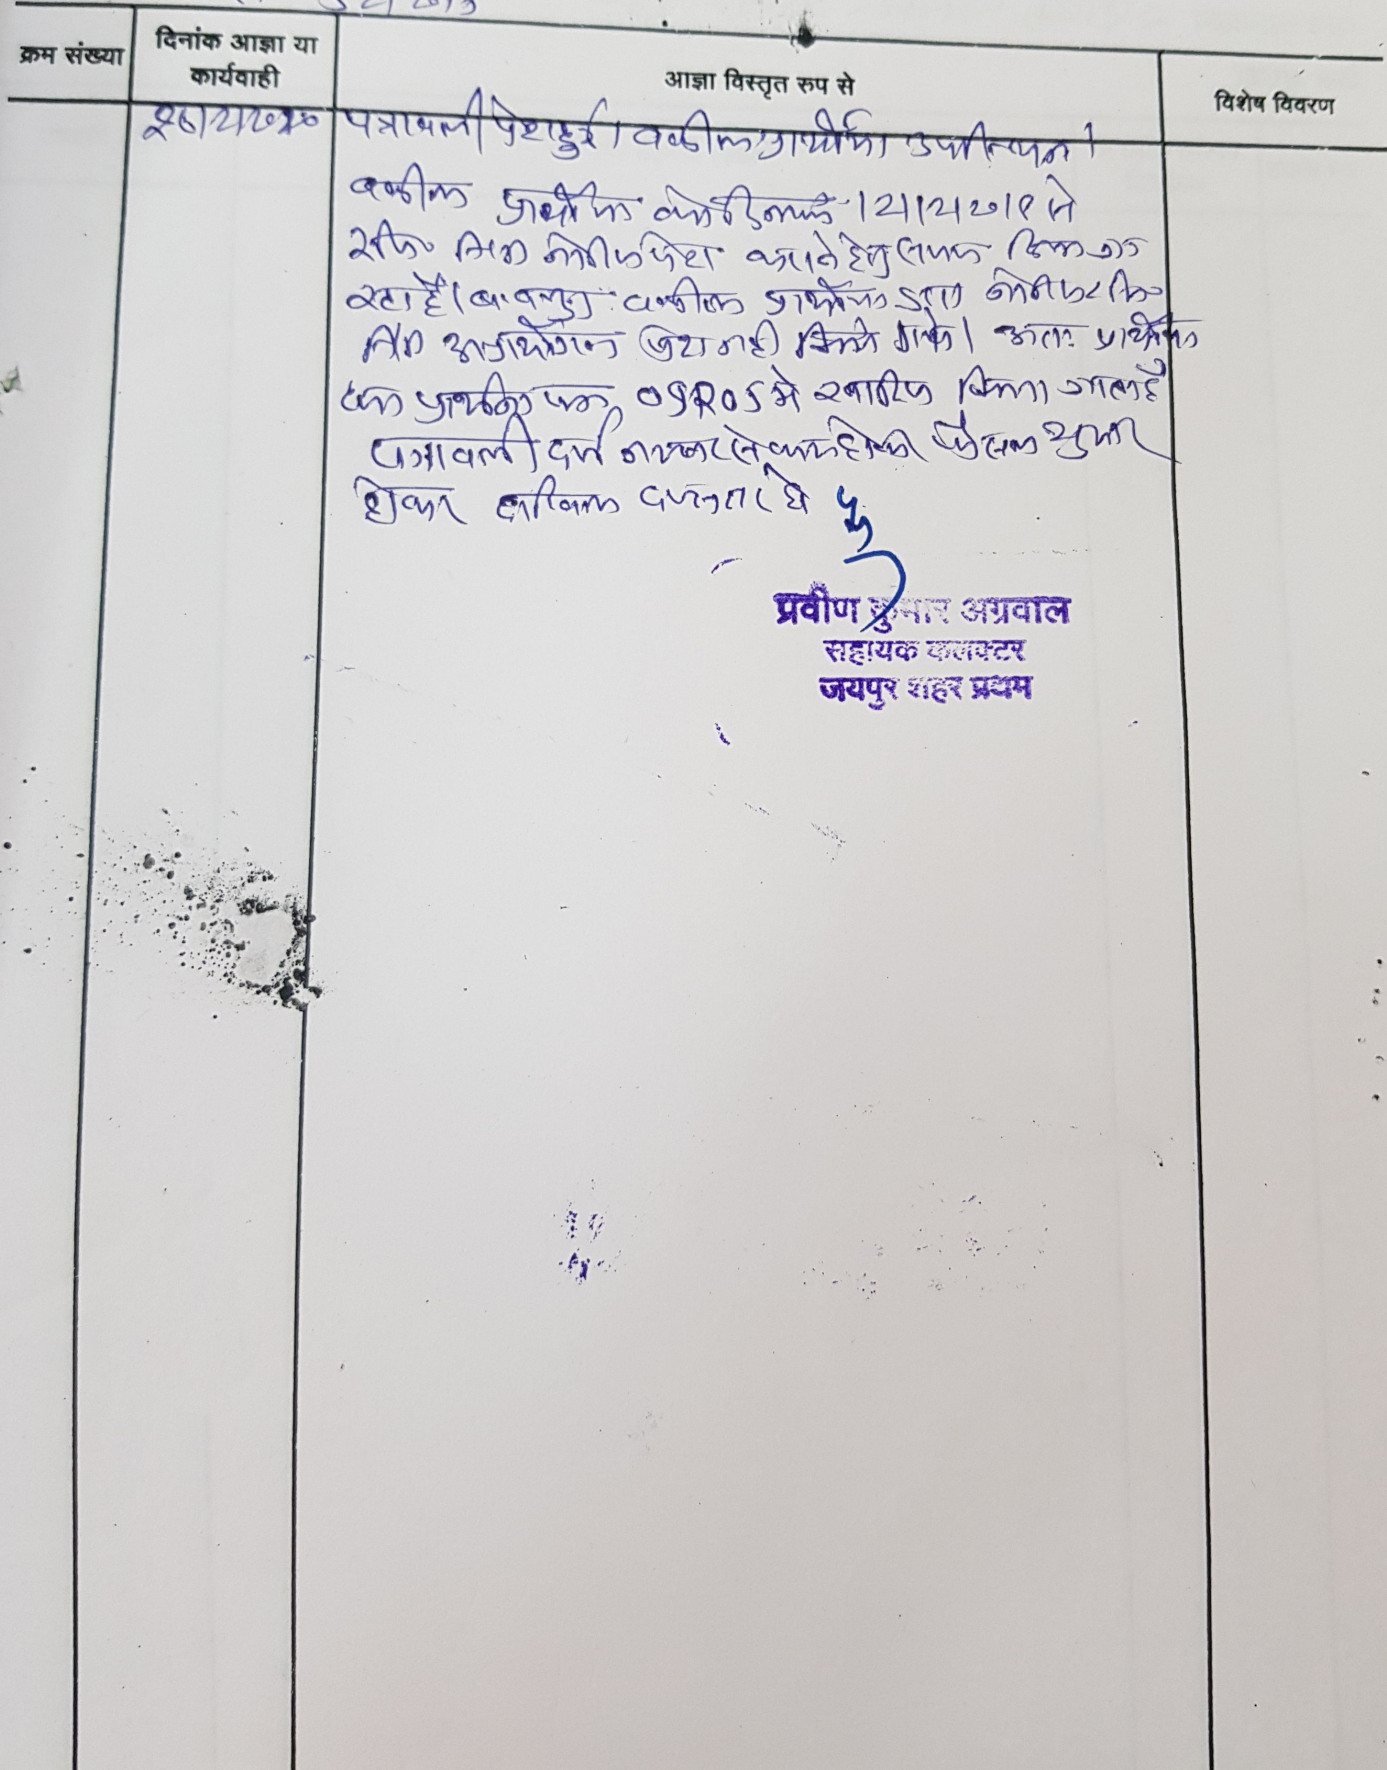 क्रम संख्या
दिनांक आज्ञा या
कार्यवाही
आज्ञा विस्तृत रूप से
विशेष विवरण
पत्रावली पेश हुई। वकील प्रार्थीया उपस्थित।
वकील प्रार्थीया को दिनांक 12/12/2018 से
पेश करने हेतु समय दिया जा
रहा है। बावजूद वकील प्रार्थीया द्वारा
नहीं किये गये। अतः प्रार्थीया
का प्रार्थना पत्र 09R05 मे खारिज किया जाता है
पत्रावली दर्ज नम्बर से कम होकर फैसल शुमार
होकर दाखिल दफ्तर हो
प्रवीण कुमार अग्रवाल
सहायक कलक्टर
जयपुर शहर प्रथम